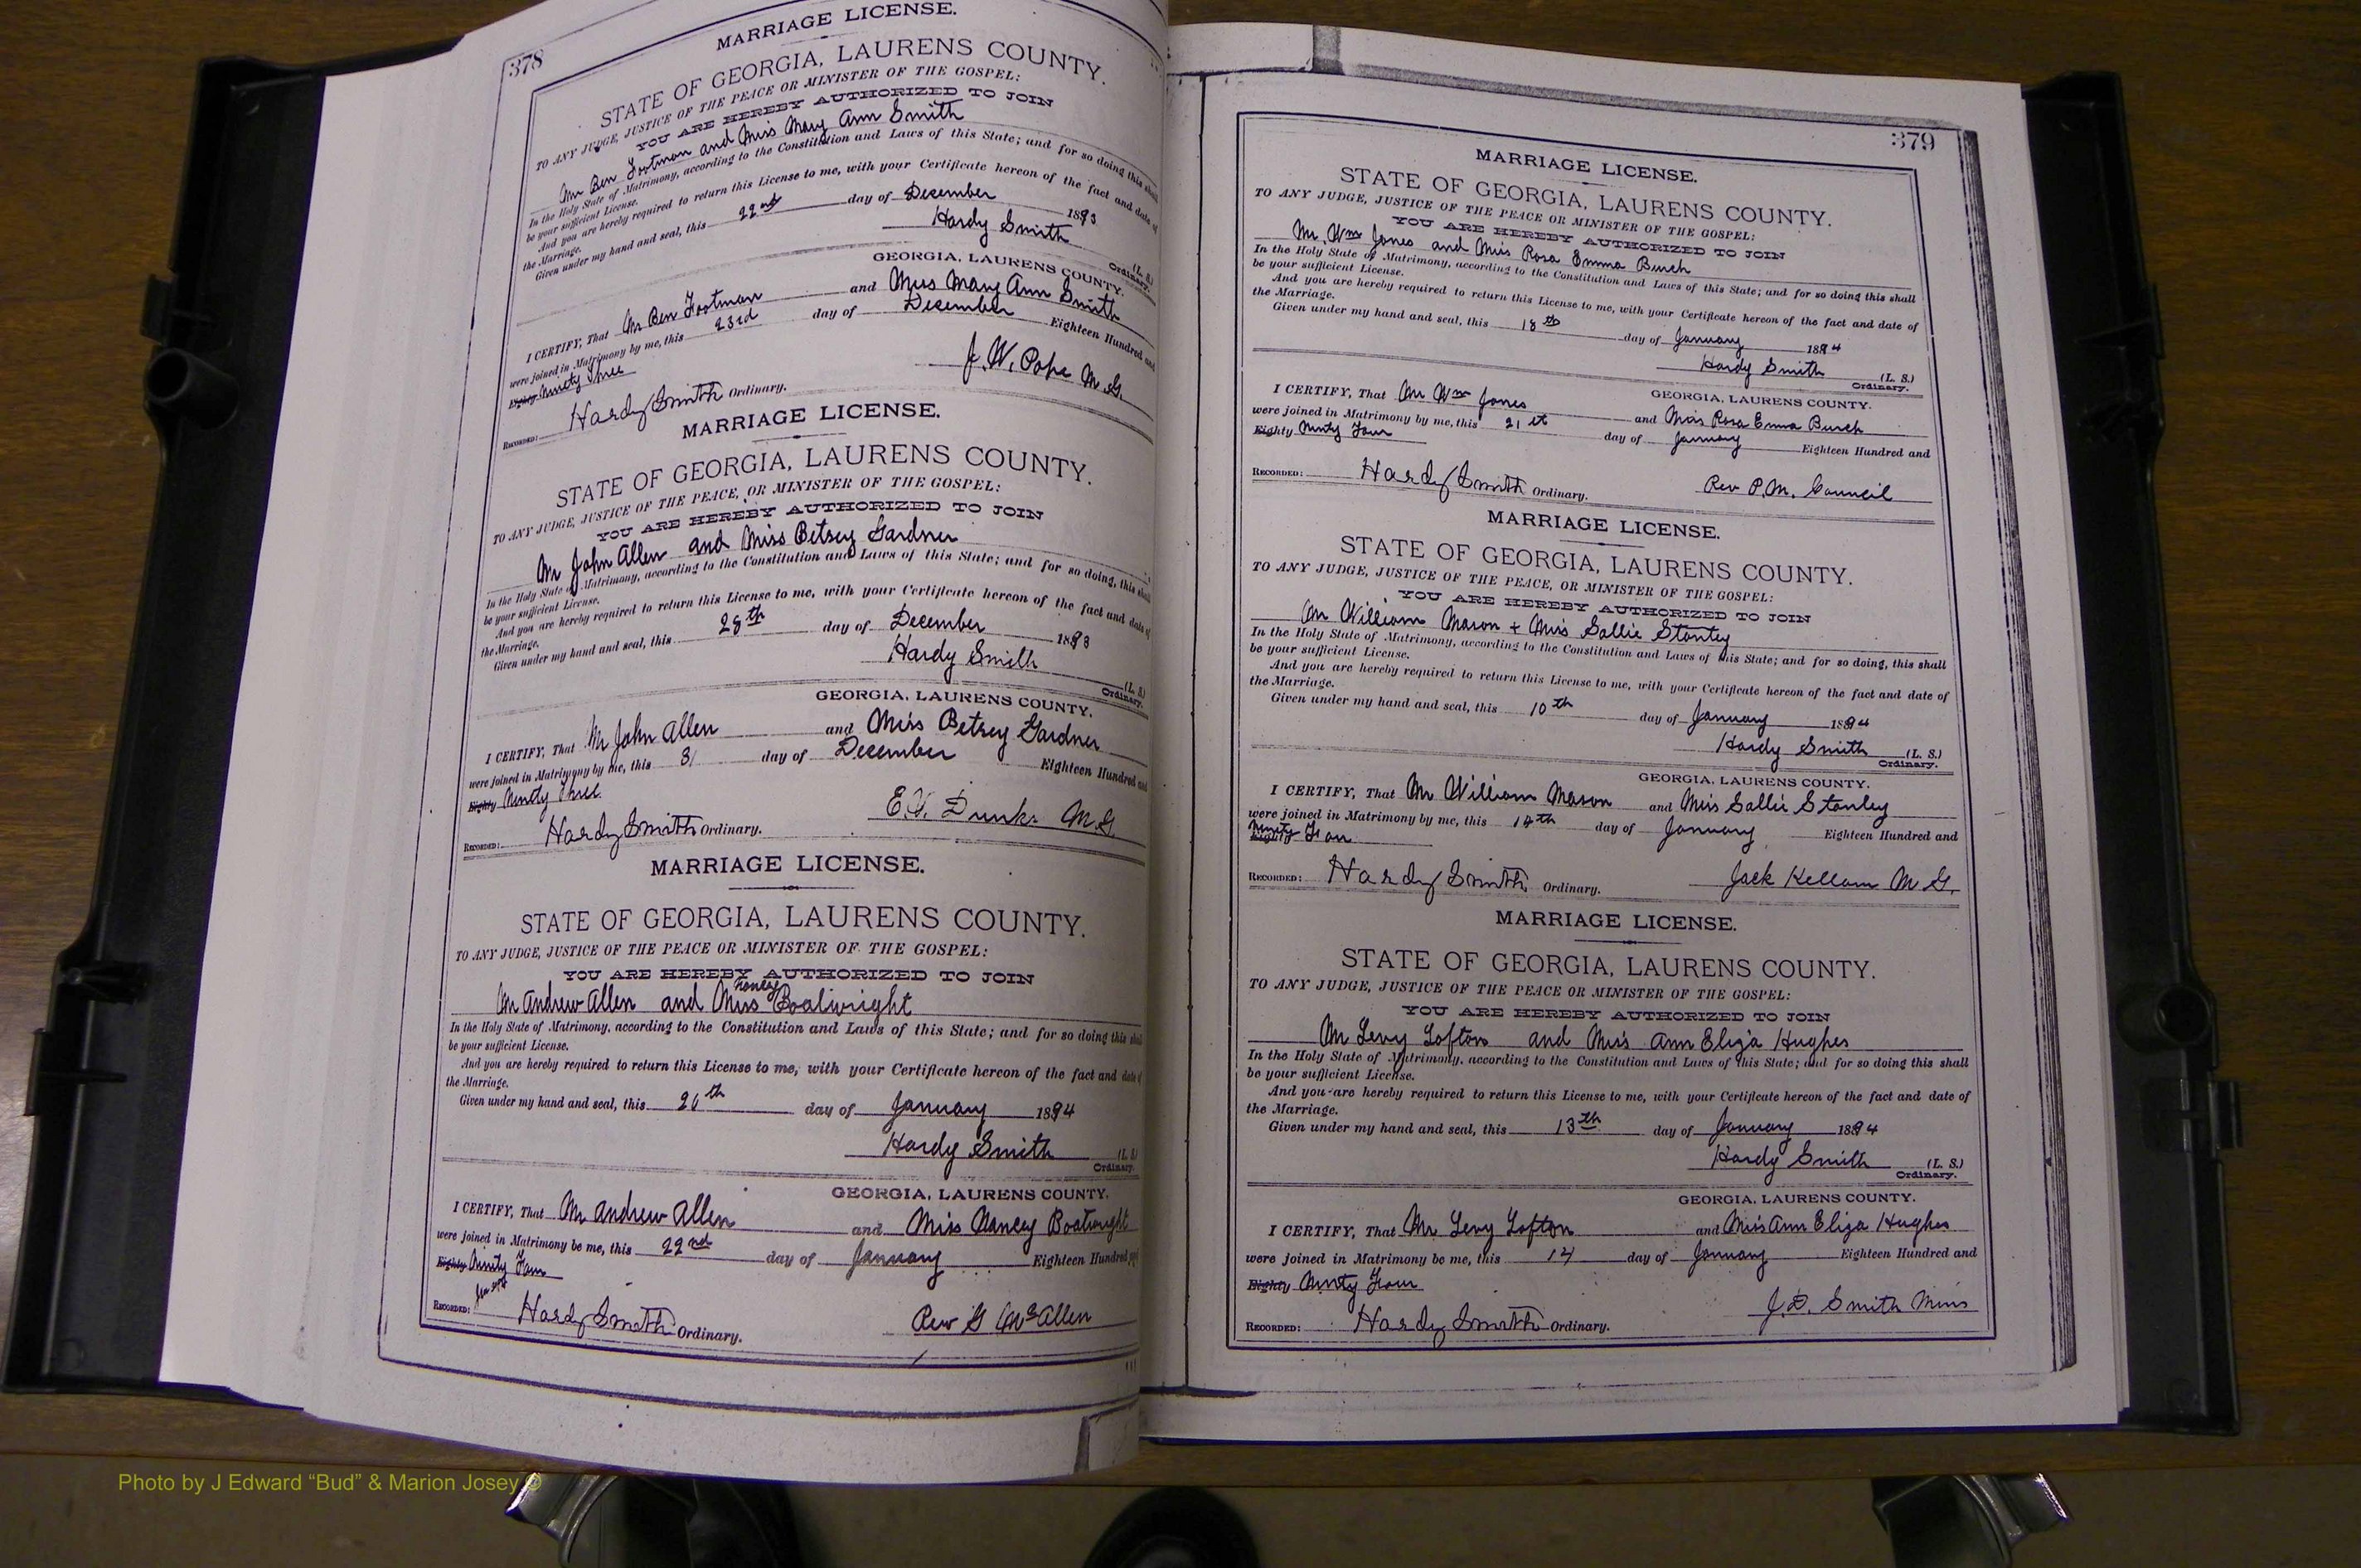 378
MARRIAGE LICENSE.
STATE OF GEORGIA, LAURENS COUNTY.
TO ANY JUDGE, JUSTICE OF THE PEACE OR MINISTER OF THE GOSPEL:
YOU ARE HEREBY AUTHORIZED TO JOIN
Mr Ben Footman and Miss Mary Ann Smith
In the Holy State of Matrimony, according to the Constitution and Laws of this State; and for so doing this shall
be your sufficient License.
And you are hereby required to return this License to me, with your Certificate hereon of the fact and date of
the Marriage.
Given under my hand and seal, this 22nd day of December 1893
Hardy Smith (L. S.)
Ordinary.
GEORGIA, LAURENS COUNTY.
I CERTIFY, That Mr Ben Footman and Miss Mary Ann Smith
were joined in Matrimony by me, this 23rd day of December Eighteen Hundred and
Eighty Ninety Three
J. W. Pope M. G.
RECORDED: Hardy Smith Ordinary.
MARRIAGE LICENSE.
STATE OF GEORGIA, LAURENS COUNTY.
TO ANY JUDGE, JUSTICE OF THE PEACE, OR MINISTER OF THE GOSPEL:
YOU ARE HEREBY AUTHORIZED TO JOIN
Mr John Allen and Miss Betsey Gardner
In the Holy State of Matrimony, according to the Constitution and Laws of this State; and for so doing, this shall
be your sufficient License.
And you are hereby required to return this License to me, with your Certificate hereon of the fact and date of
the Marriage.
Given under my hand and seal, this 28th day of December 1893
Hardy Smith (L. S.)
Ordinary.
GEORGIA, LAURENS COUNTY.
I CERTIFY, That Mr John Allen and Miss Betsey Gardner
were joined in Matrimony by me, this 31 day of December Eighteen Hundred and
Eighty Ninety Three
M. G.
RECORDED: Hardy Smith Ordinary.
MARRIAGE LICENSE.
STATE OF GEORGIA, LAURENS COUNTY.
TO ANY JUDGE, JUSTICE OF THE PEACE OR MINISTER OF THE GOSPEL:
YOU ARE HEREBY AUTHORIZED TO JOIN
Mr Andrew Allen and Miss Nancy Boatwright
In the Holy State of Matrimony, according to the Constitution and Laws of this State; and for so doing this shall
be your sufficient License.
And you are hereby required to return this License to me, with your Certificate hereon of the fact and date of
the Marriage.
Given under my hand and seal, this 20th day of January 1894
Hardy Smith (L. S.)
Ordinary.
GEORGIA, LAURENS COUNTY.
I CERTIFY, That Mr Andrew Allen and Miss Nancy Boatwright
were joined in Matrimony be me, this 22nd day of January Eighteen Hundred and
Eighty Ninety Four
RECORDED: Hardy Smith Ordinary. Rev G McAllen
379
MARRIAGE LICENSE.
STATE OF GEORGIA, LAURENS COUNTY.
TO ANY JUDGE, JUSTICE OF THE PEACE OR MINISTER OF THE GOSPEL:
YOU ARE HEREBY AUTHORIZED TO JOIN
Mr. Wm Jones and Miss Rosa Emma Burch
In the Holy State of Matrimony, according to the Constitution and Laws of this State; and for so doing this shall
be your sufficient License.
And you are hereby required to return this License to me, with your Certificate hereon of the fact and date of
the Marriage.
Given under my hand and seal, this 18th day of January 1894
Hardy Smith (L. S.)
Ordinary.
GEORGIA, LAURENS COUNTY.
I CERTIFY, That Mr Wm Jones and Miss Rosa Emma Burch
were joined in Matrimony by me, this 21st day of January Eighteen Hundred and
Eighty Ninty Four
RECORDED: Hardy Smith Ordinary. Rev P. M. Council
MARRIAGE LICENSE.
STATE OF GEORGIA, LAURENS COUNTY.
TO ANY JUDGE, JUSTICE OF THE PEACE, OR MINISTER OF THE GOSPEL:
YOU ARE HEREBY AUTHORIZED TO JOIN
Mr William Mason + Miss Sallie Stanley
In the Holy State of Matrimony, according to the Constitution and Laws of this State; and for so doing, this shall
be your sufficient License.
And you are hereby required to return this License to me, with your Certificate hereon of the fact and date of
the Marriage.
Given under my hand and seal, this 10th day of January 1894
Hardy Smith (L. S.)
Ordinary.
GEORGIA, LAURENS COUNTY.
I CERTIFY, That Mr William Mason and Miss Sallie Stanley
were joined in Matrimony by me, this 14th day of January Eighteen Hundred and
Eighty Ninety Four
RECORDED: Hardy Smith Ordinary. Jack Kellam M. G.
MARRIAGE LICENSE.
STATE OF GEORGIA, LAURENS COUNTY.
TO ANY JUDGE, JUSTICE OF THE PEACE OR MINISTER OF THE GOSPEL:
YOU ARE HEREBY AUTHORIZED TO JOIN
Mr Levy Lofton and Miss Ann Eliza Hughes
In the Holy State of Matrimony, according to the Constitution and Laws of this State; and for so doing this shall
be your sufficient License.
And you are hereby required to return this License to me, with your Certificate hereon of the fact and date of
the Marriage.
Given under my hand and seal, this 13th day of January 1894
Hardy Smith (L. S.)
Ordinary.
GEORGIA, LAURENS COUNTY.
I CERTIFY, That Mr. Levy Lofton and Miss Ann Eliza Hughes
were joined in Matrimony be me, this 14 day of January Eighteen Hundred and
Eighty Ninty Four
RECORDED: Hardy Smith Ordinary. J. D. Smith Mins
Photo by J Edward “Bud” & Marion Josey ©